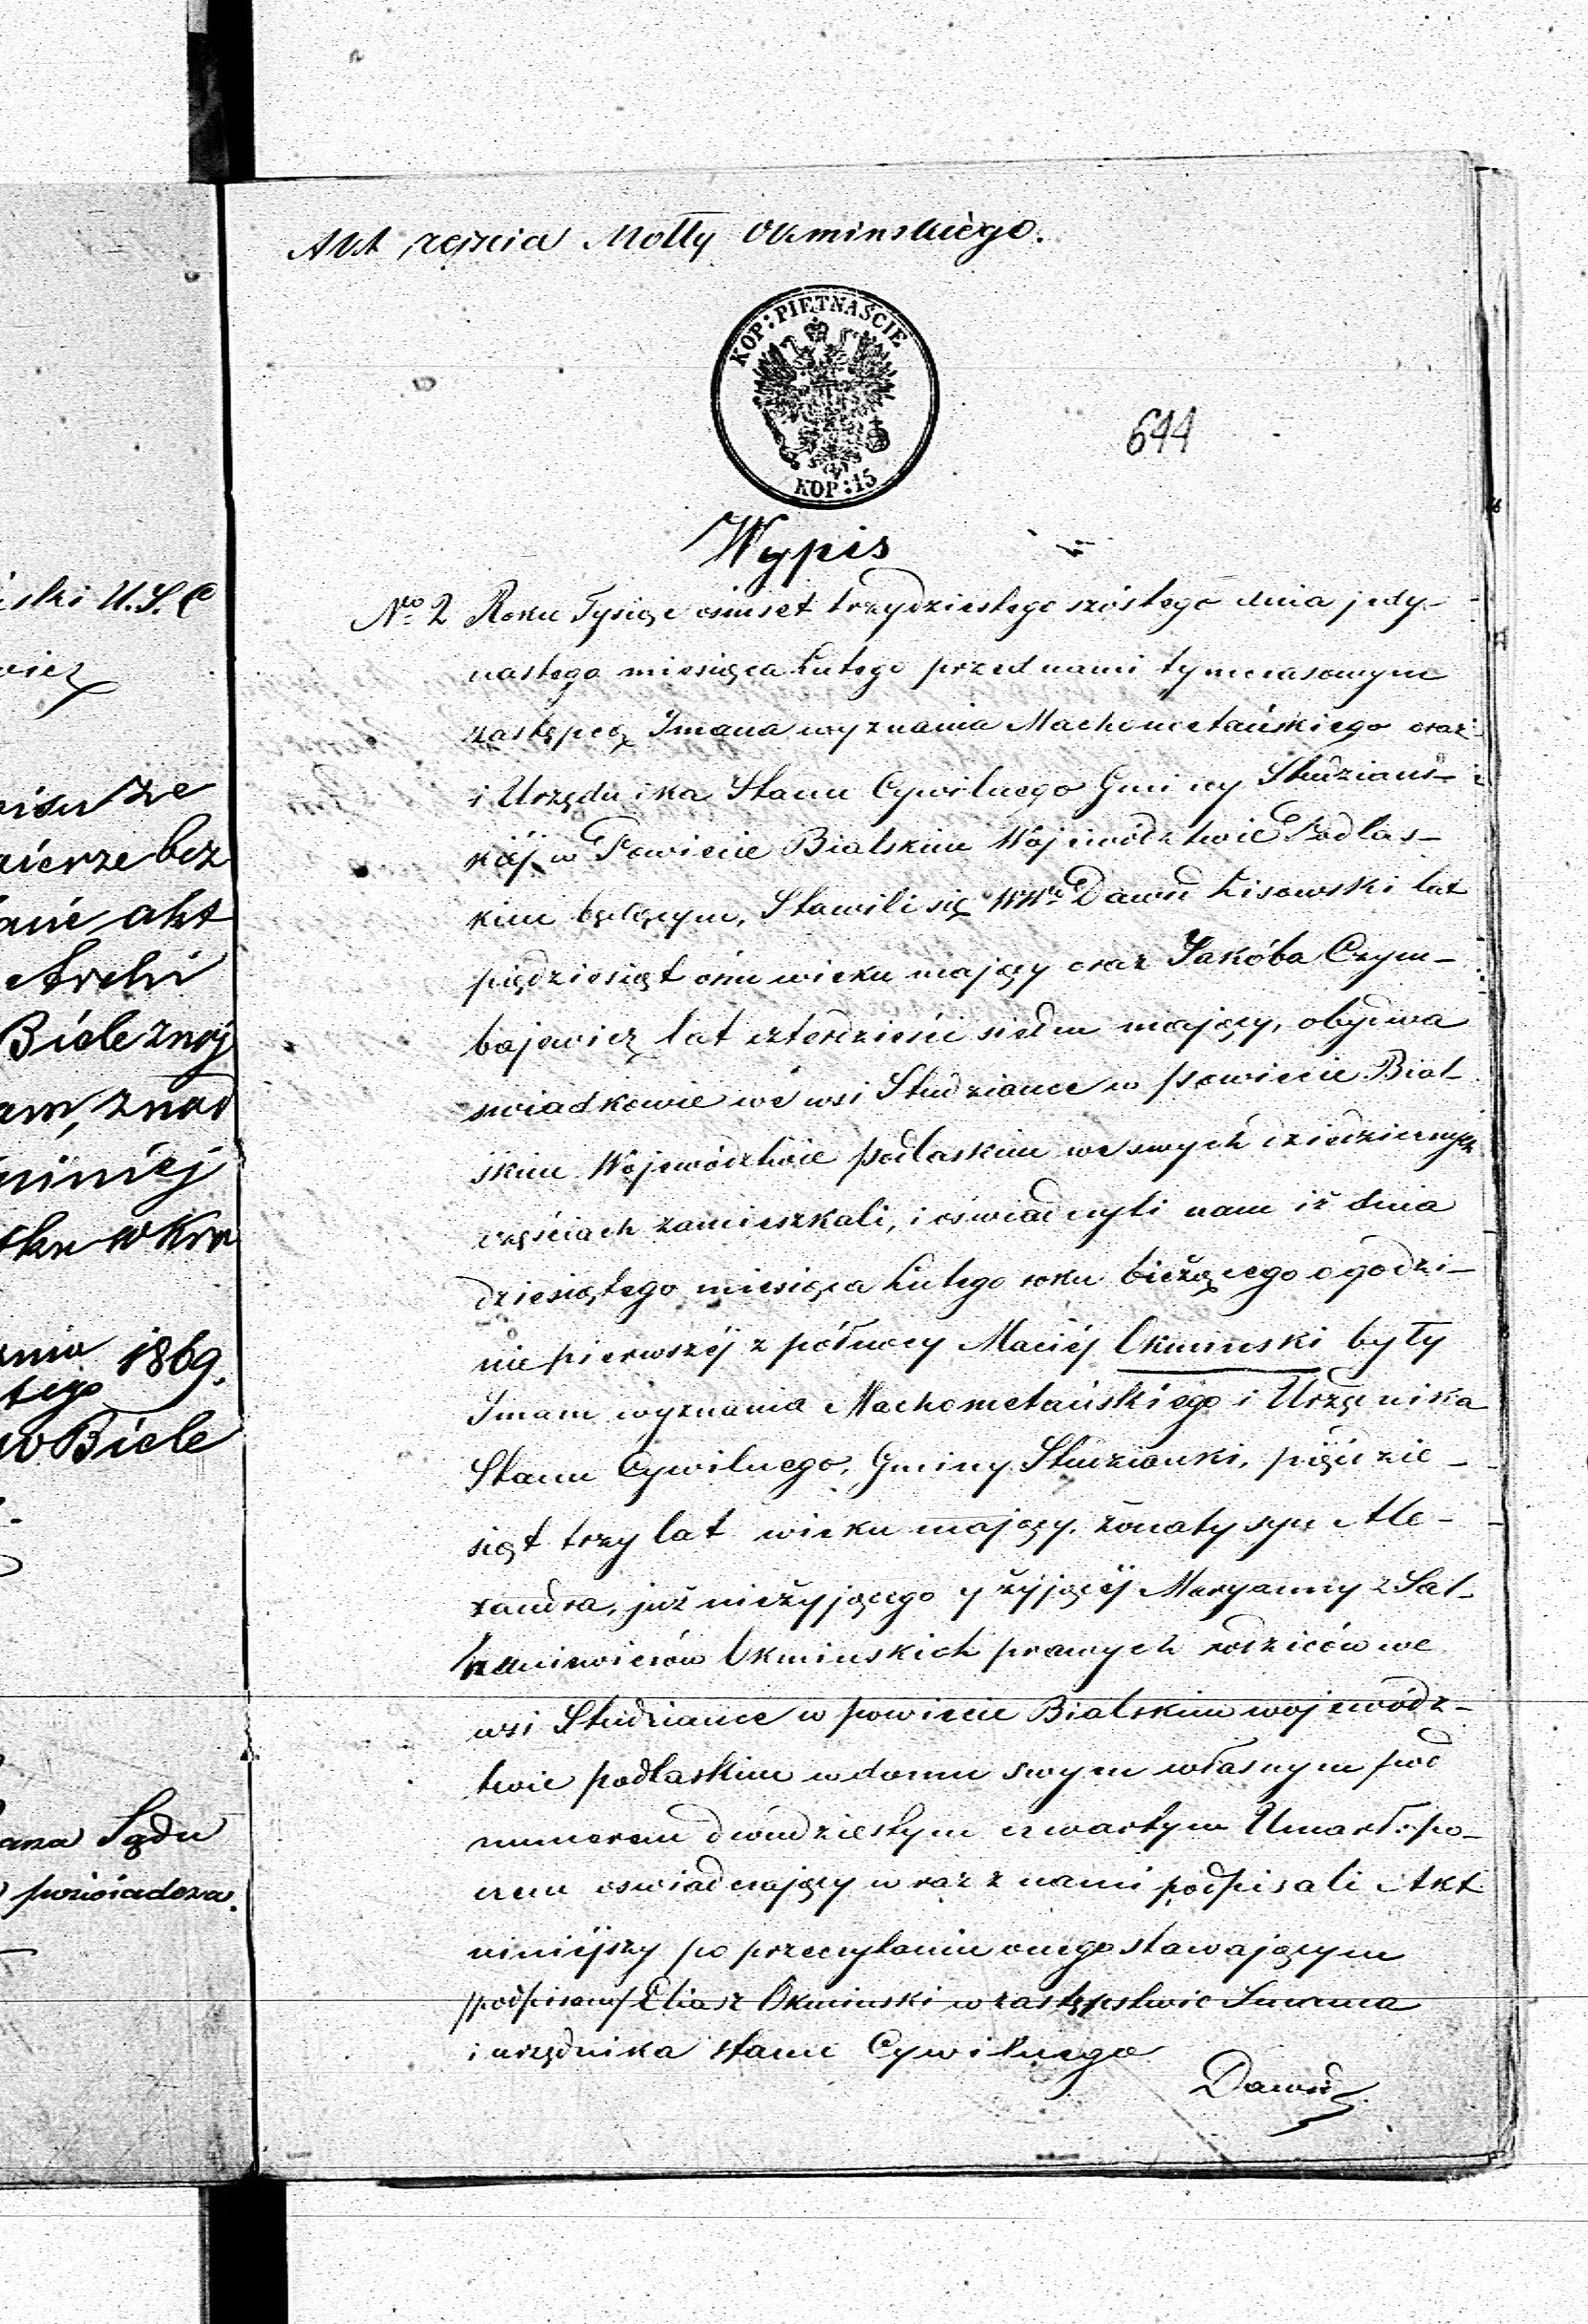 iski U.S.C
wicz
nisu ze
nierze bez
anie akt
Archi
Biele znaj
am, znad
niniej
1869.
tego
w Biele
Sądu
poświadcza.
Akt zejścia Molly Okminskiego.
KOP: PIĘTNAŚCIE
KOP: 15
644
Wypis
No 2 Roku Tysiąc ośmset trzydziestego szóstego dnia jedy-
nastego miesiąca Lutego przed nami tymczasowym
zastępcą Imana wyznania Machometańskiego oraz
i Urzędnika Stanu Cywilnego Gminy Studziańs-
kiéj w Powiecie Bialskim Wojewódzstwie Podlas-
kim będącym, Stawili się WWni Dawid Lisowski lat
piędziesiąt ośm wieku mający oraz Jakóba Czym-
bajewicz lat czterdzieści siedm mający, obydwa
swiadkowie we wsi Studziance w powiecie Bial-
skim Wojewódzstwie podlaskim we swych dziedzicznych
częściach zamieszkali, i oświadczyli nam iż dnia
dziesiątego miesiąca Lutego roku bieżącego o godzi-
nie pierwszéj z północy Maciéj Okminski były
Imam wyznania Machometańskiego i Urzęnika
Stanu Cywilnego, Gminy Studzianki, pięćdzie-
siąt trzy lat wieku mający, żonaty syn Ale-
xandra, już nieżyjącego y żyjącéj Maryanny z Sul-
kiewiczów Okminskich prawych rodziców we
wsi Studziance w powiecie Bialskim wojewódz-
twie podlaskim w domu swym własnym pod
numerem dwudziestym czwartym Umarł: po-
czem oświadczający wraz z nami podpisali Akt
niniéjszy po przeczytaniu onego stawającym
/podpisany/ Eliasz Okminski w zastępstwie Imama
i urzędnika stanu Cywilnego
Dawid